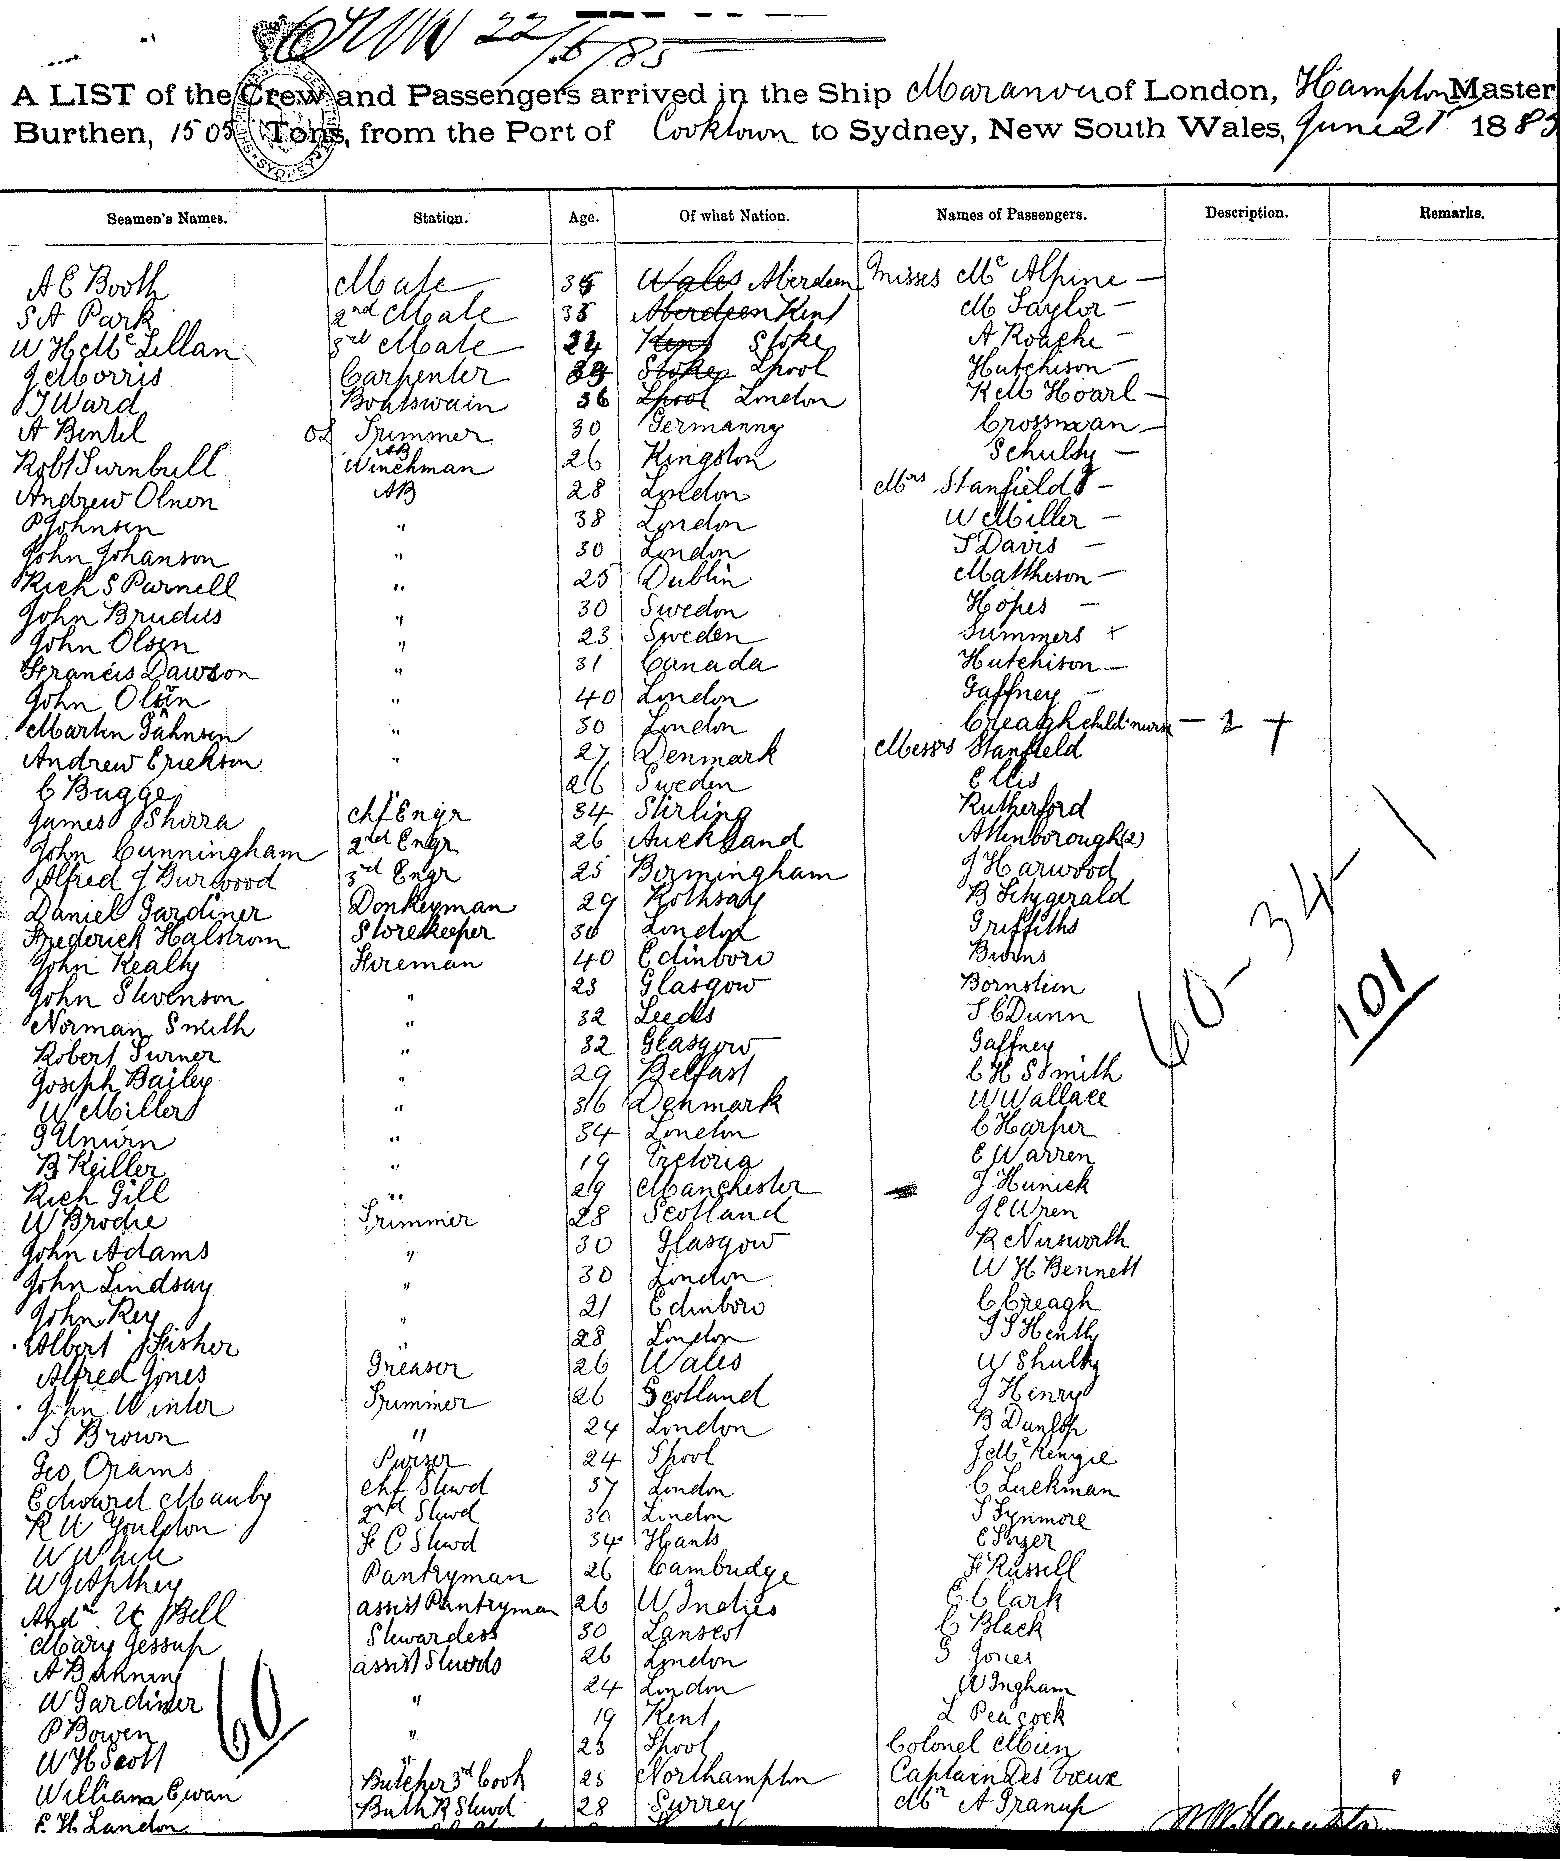 22/6/85
A LIST of the Crew and Passengers arrived in the Ship Maranoa of London, Hampton Master
Burthen, 1505 Tons, from the Port of Cooktown to Sydney, New South Wales, June 21st 1885
Seamen's Names. Station. Age. Of what Nation. Names of Passengers. Description. Remarks.
A E Booth Mate 35 Wales Aberdeen Misses Mc Alpine —
S A Park 2nd Mate 35 Aberdeen Kent M Taylor —
W H Mc Lellan 3rd Mate 24 Kent Stoke A Roache —
J Morris Carpenter Stoke Lpool Hutchison —
J Ward Boatswain 36 Lpool London K M Hoarl —
A Bentel Trimmer 30 Germanny Crossman —
Robt Turnbull AB Winchman 26 Kingston Schulty —
Andrew Olnon AB 28 London Mrs Stanfield —
P Johnsen " 38 London W Miller —
John Johanson " 30 London S Davis —
Rich S Parnell " 25 Dublin Mattheson —
John Brudus " 30 Swedon Hopes —
John Olsen " 23 Sweden Summers +
Francis Dawson " 31 Canada Hutchison —
John Olsen " 40 London Gaffney —
Martin Jahnsen " 30 London Creagh child & nurse — 2 +
Andrew Erickson " 27 Denmark Messrs Stanfield
C Bagge 26 Sweden Ellis
James Shirra chf Engr 34 Stirling Rutherford
John Cunningham 2nd Engr 26 Auckland Attenborough (2)
Alfred J Burwood 3rd Engr 25 Birmingham J Harwood
Daniel Gardiner Donkeyman 29 Rothsay B Fitzgerald
Frederick Halstrom Storekeeper 30 London Griffiths
John Kealty Fireman 40 Edinboro Burns
John Stevenson " 23 Glasgow Bornstein
Norman Smith " 32 Leeds S C Dunn
Robert Turner " 32 Glasgow Gaffney
Joseph Bailey " 29 Belfast C H Smith
W Millers " 36 Denmark W Wallace
J Unwin " 34 London C Harper
B Keiller " 19 Victoria E Warren
Rich Gill " 29 Manchester J Hunick
W Brodie Trimmer 28 Scotland J E Wren
John Adams " 30 Glasgow R Nusworth
John Lindsay " 30 London W H Bennett
John Key " 21 Edinboro C Creagh
Albert J Fisher " 28 London T S Hently
Alfred Jones Greaser 26 Wales W Shulty
John Winter Trimmer 26 Scotland J Henry
S Brown " 24 London B Dunlop
Geo Orams Purser 24 Lpool J McKenzie
Edward Mauby chf Stewd 37 London C Luckman
R W Youldon 2nd Stewd 30 London S Synmore
W White F C Stewd 34 Hants
W J Apthey Pantryman 26 Cambridge F Russell
Andw Bell assist Pantryman 26 W Indies E Clark
Mary Jessup Stewardess 30 C Black
A Banning assist Stewds 26 London G Jones
W Gardiner " 24 London W Ingham
P Bowen " 19 Kent L Peacock
W H Scott " 23 Lpool Colonel Mien
William Ewan Butcher 3rd Cook 25 Northampton Captain Des Voeux
E H Landon Buth R Stewd 28 Surrey Mr A Granup
60
60 — 34 — 1
101